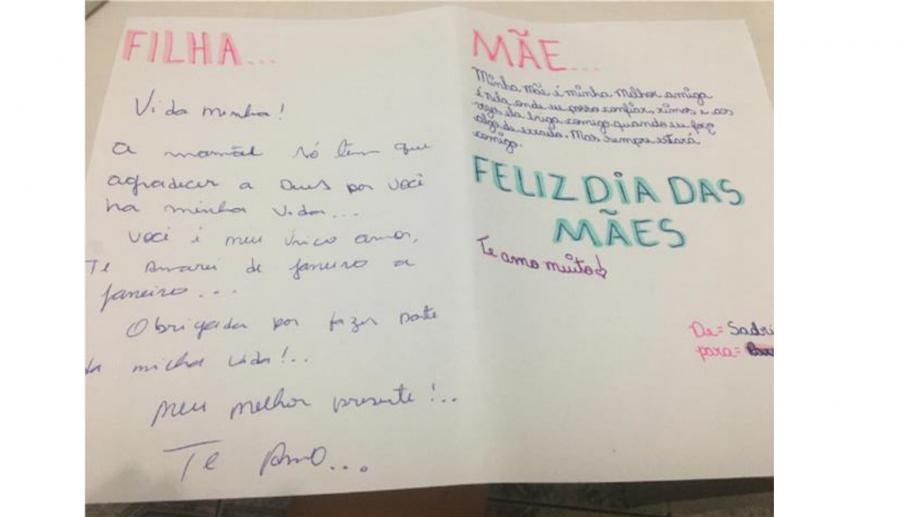 FILHA...
Vida minha!
a mamãe só tem que
agradecer a Deus por você
na minha vida...
você é meu único amor,
Te amarei de janeiro a
janeiro...
Obrigada por fazer parte
da minha vida!..
meu melhor presente!..
Te Amo...
MÃE...
Minha mãe é minha melhor amiga
é nela onde eu posso confiar, rimos e as
vezes ela briga comigo quando eu faço
algo de errado. Mas sempre estará
comigo.
FELIZ DIA DAS
MÃES
Te amo muito
De= Sadri
para=